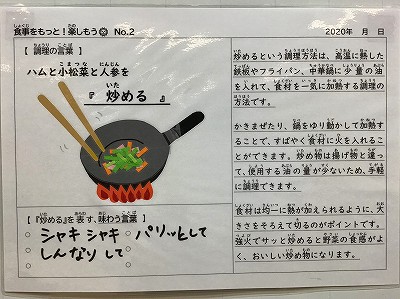 食事をもっと！楽しもう☺ No.2
2020年　月　日
【 調理の言葉 】
ハムと小松菜と人参を
『 炒める 』
【『炒める』を表す、味わう言葉 】
シャキシャキ
パリッとして
しんなりして
炒めるという調理方法は、高温に熱した
鉄板やフライパン、中華鍋に少量の油
を入れて、食材を一気に加熱する調理の
方法です。
かきまぜたり、鍋をゆり動かして加熱す
ることで、すばやく食材に火を入れるこ
とができます。炒め物は揚げ物と違っ
て、使用する油の量が少ないため、手軽
に調理できます。
食材は均一に熱が加えられるように、大
きさをそろえて切るのがポイントです。
強火でサッと炒めると野菜の食感がよ
く、おいしい炒め物になります。